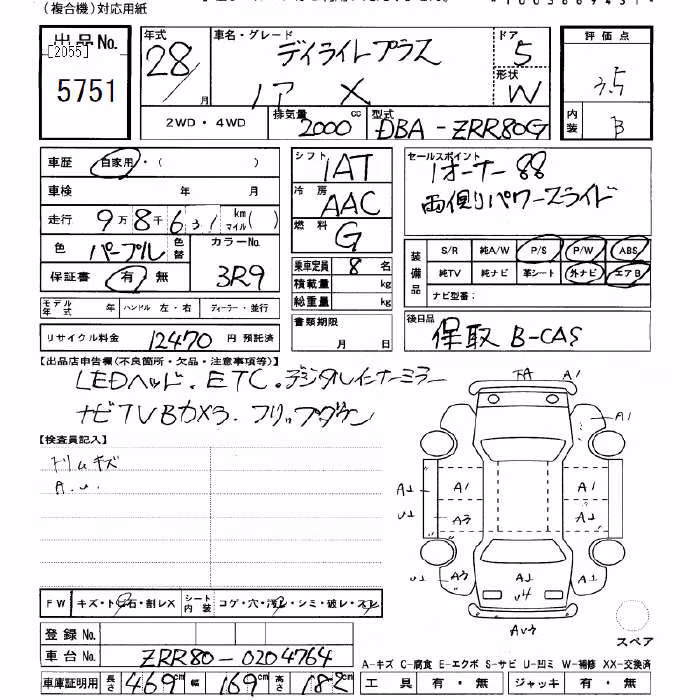 (複合機)対応用紙
出品No.
[2055]
5751
年式
28/
月
車名・グレード
デイライトプラス
ノア X
ドア
5
形状
W
評価点
3.5
内装
B
2WD・4WD
排気量
2000cc
型式
DBA-ZRR80G
車歴 自家用・( )
車検 年 月
走行 9万8千631 km マイル( )
色 パープル 色替 カラーNo. 3R9
保証書 有・無
シフト 1AT
冷房 AAC
燃料 G
乗車定員 8名
積載量 kg
総重量 kg
セールスポイント
1オーナー 88
両側パワースライド
装備品
S/R 純A/W P/S P/W ABS
純TV 純ナビ 革シート 外ナビ エアB
ナビ型番:
モデル年式 年 ハンドル 左・右 ディーラー・並行
リサイクル料金 12470 円 預託済
書類期限
月 日
後日品
保取 B-CAS
【出品店申告欄(不良箇所・欠品・注意事項等)】
LEDヘッド.ETC.デジタルインナーミラー
ナビTVBカメラ.フリップダウン
【検査員記入】
トリムキズ
A.U.
FA A1
A1
A1 A1 A1
U1 A3 A1
A3 A1 A1
U4
AU3
スペア
FW キズ・トビ石・割レX シート内装 コゲ・穴・汚レ・シミ・破レ・スレ
登録No.
車台No. ZRR80-0204764
車庫証明用 長さ 469cm 幅 169cm 高さ 182cm
A-キズ C-腐食 E-エクボ S-サビ U-凹ミ W-補修 XX-交換済
工具 有・無 ジャッキ 有・無